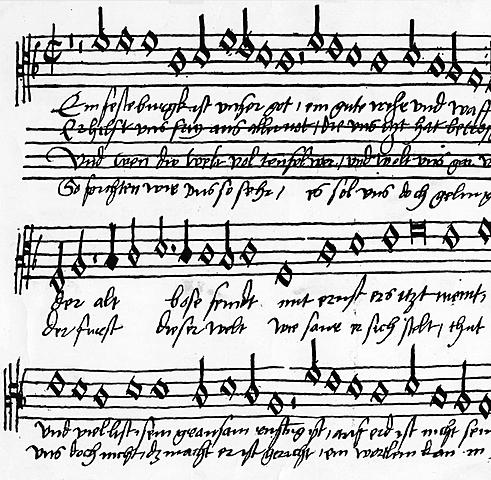 Ein feste burgk ist unser got, ein gute wehr und waff
Er hilft uns frey aus aller not, die uns itzt hat betro
Und wen die welt vol teufel wer, und wolt uns gar v
So furchten wir uns so sehr, es sol uns doch geling
der alt bose feindt mit ernst ers itzt meint,
der furst dieser welt wie saur er sich stelt, thut
und viel list, sein grausam rustung ist, auf erd ist nicht sein
uns doch nicht, dz macht er ist gericht, ein wortlein kan in